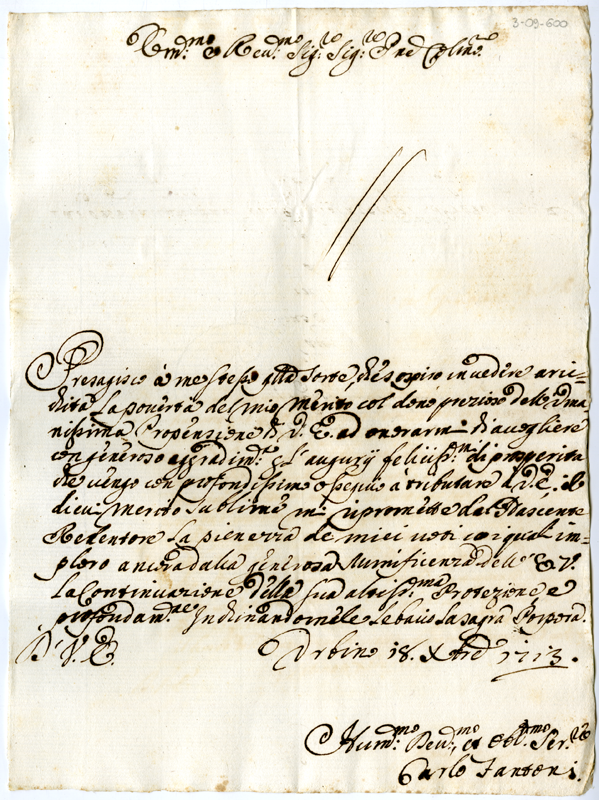 3-09-600
Em.mo e Reu.mo Sig.re Sig.re Pne Col.mo
Presagisco à me stesso quella sorte, che sospiro in vedere aric-
chita la pouertà del mio merito col dono prezioso della uma
nissima Propensione di V. E. ad onorarmi di accogliere
con generoso aggradim.to gl'augurij feliciss.mi di prosperità
che vengo con profondissimo ossequio a tributare à V. E., il
di cui merito sublime mi ripromette dal Nascente
Redentore la pienezza de miei uoti con quali im-
ploro ancora dalla generosa Munificenza dell' E. V.
la Continuazione della sua altiss.ma Protezione e
profondam.te Inchinandomele le bacio la sagra Porpora.
D. V. E. Vrbino 18. Xbre 1713.
Hum.mo Deu.mo et Obl.mo Ser.re
Carlo Fantoni.